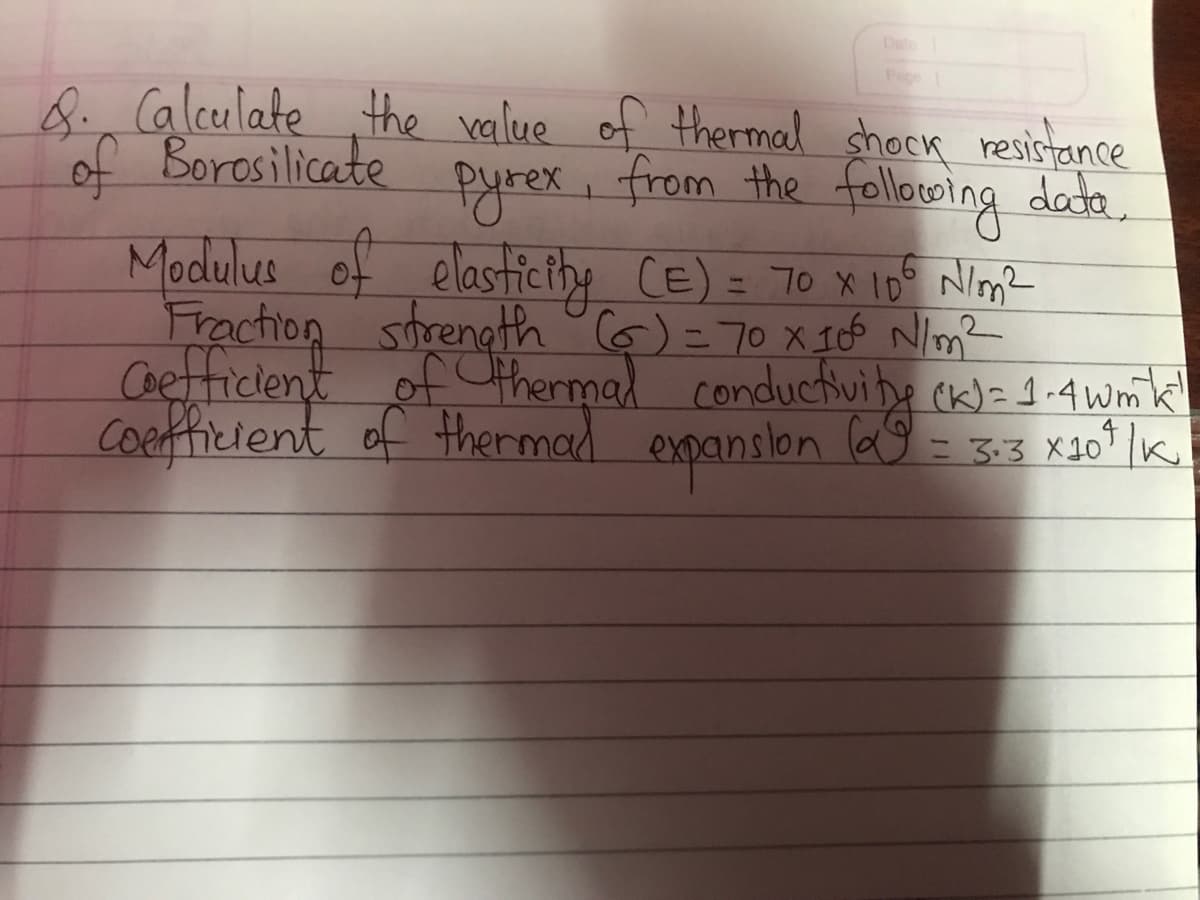 Date
Page
Q. Calculate the value of thermal shock resistance
of Borosilicate pyrex, from the following data,
Modulus of elasticity (E) = 70 x 10⁶ N/m²
Fraction strength (σ) = 70 x 10⁶ N/m²
Coefficient of thermal conductivity (K) = 1.4 Wm⁻¹k⁻¹
Coefficient of thermal expansion (α) = 3.3 x 10⁴ /K